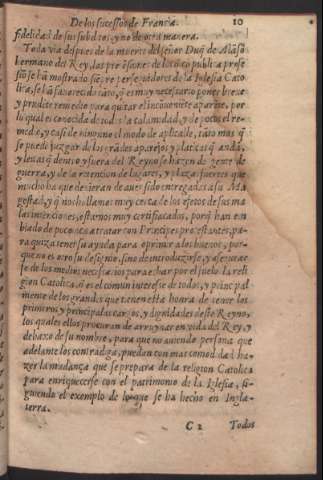 De los sucessos de Francia. 10
fidelidad de sus subditos, y no de otra manera.
Toda via despues de la muerte del señor Duq̃ de Alãsõ
hermano del Rey, las
sseo se hã mostrado siẽpre perseguidores de la Iglesia Cato
lica, se hã fauorecido tãto, q̃ es muy necessario poner breue
y prudẽte remedio para quitar el incõueniẽte aparẽte, por
lo qual es conocida de todos la calamidad, y de pocos el re-
medio, y casi de ninguno el modo de aplicalle, tãto mas q̃
se puede juzgar de los grãdes aparejos y platicas q̃ andã,
y leuas q̃ dentro y fuera del Reyno se hazen de gente de
guerra, y de la retencion de lugares, y plaças fuertes que
mucho ha que deuieran de auer sido entregadas a su Ma
gestad, y q̃ nos hallamos muy cerca de los efetos de sus ma
las intenciones, estamos muy certificados, porq̃ han em
biado de poco aca a tratar con Principes protestantes, pa-
ra quiza tener su ayuda para oprimir a los buenos, por-
que no es otro su designio, sino de introduzirse, y assegurar
se de los medios necessarios para echar por el suelo la reli
gion Catolica, q̃ es el comun interesse de todos, y principal
mente de los grandes que tienen esta honra de tener los
primeros, y principales cargos, y dignidades deste Reyno,
los quales ellos procuran de arruynar en vida del Rey, y
debaxo de su nombre, para que no auiendo persona que
adelante los contradiga, puedan con mas comodidad ha-
zer la mudança que se prepara de la religion Catolica
para enriquecerse con el patrimonio de la Iglesia, si-
guiendo el exemplo de lo que se ha hecho en Ingla-
terra.
C 2 Todos